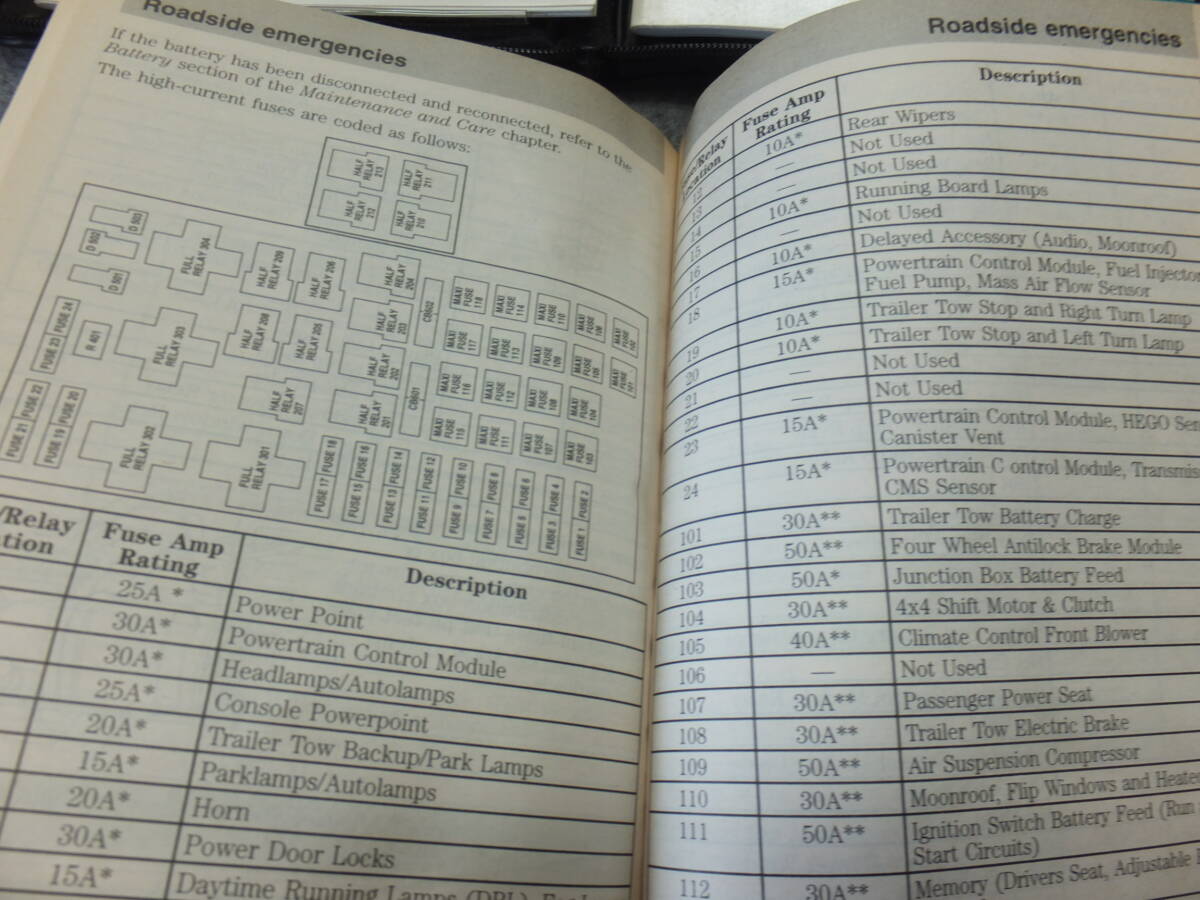 Roadside emergencies
If the battery has been disconnected and reconnected, refer to the
Battery section of the Maintenance and Care chapter.
The high-current fuses are coded as follows:
HALF RELAY 213
HALF RELAY 211
HALF RELAY 212
HALF RELAY 210
D 503
D 502
D 501
FULL RELAY 304
HALF RELAY 209
HALF RELAY 206
HALF RELAY 204
CB602
MAXI FUSE 118
MAXI FUSE 114
MAXI FUSE 110
MAXI FUSE 106
MAXI FUSE 102
FUSE 23 FUSE 24
R 401
FULL RELAY 303
HALF RELAY 208
HALF RELAY 205
HALF RELAY 203
MAXI FUSE 117
MAXI FUSE 113
MAXI FUSE 109
MAXI FUSE 105
MAXI FUSE 101
HALF RELAY 202
CB601
MAXI FUSE 116
MAXI FUSE 112
MAXI FUSE 108
MAXI FUSE 104
FUSE 21 FUSE 22
FUSE 19 FUSE 20
FULL RELAY 302
HALF RELAY 207
FULL RELAY 301
HALF RELAY 201
MAXI FUSE 115
MAXI FUSE 111
MAXI FUSE 107
MAXI FUSE 103
FUSE 17 FUSE 18
FUSE 15 FUSE 16
FUSE 13 FUSE 14
FUSE 11 FUSE 12
FUSE 9 FUSE 10
FUSE 7 FUSE 8
FUSE 5 FUSE 6
FUSE 3 FUSE 4
FUSE 1 FUSE 2
/Relay Fuse Amp Description
tion Rating
25A * Power Point
30A* Powertrain Control Module
30A* Headlamps/Autolamps
25A* Console Powerpoint
20A* Trailer Tow Backup/Park Lamps
15A* Parklamps/Autolamps
20A* Horn
30A* Power Door Locks
15A* Daytime Running Lamps (DRL),
Roadside emergencies
/Relay Fuse Amp Description
ocation Rating
12 10A* Rear Wipers
13 — Not Used
14 — Not Used
15 10A* Running Board Lamps
16 — Not Used
17 10A* Delayed Accessory (Audio, Moonroof)
18 15A* Powertrain Control Module, Fuel Injector
Fuel Pump, Mass Air Flow Sensor
19 10A* Trailer Tow Stop and Right Turn Lamp
20 10A* Trailer Tow Stop and Left Turn Lamp
21 — Not Used
22 — Not Used
23 15A* Powertrain Control Module, HEGO Sen
Canister Vent
24 15A* Powertrain C ontrol Module, Transmis
CMS Sensor
101 30A** Trailer Tow Battery Charge
102 50A** Four Wheel Antilock Brake Module
103 50A* Junction Box Battery Feed
104 30A** 4x4 Shift Motor & Clutch
105 40A** Climate Control Front Blower
106 — Not Used
107 30A** Passenger Power Seat
108 30A** Trailer Tow Electric Brake
109 50A** Air Suspension Compressor
110 30A** Moonroof, Flip Windows and Heate
111 50A** Ignition Switch Battery Feed (Run
Start Circuits)
112 30A** Memory (Drivers Seat, Adjustable